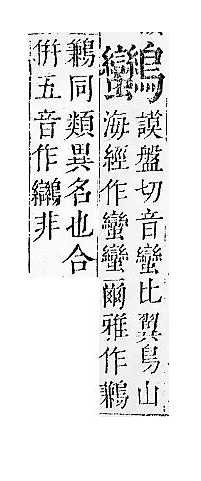 謨盤切音蠻比翼鳥山
海經作蠻蠻爾雅作鶼
鶼同類異名也合
併五音作非